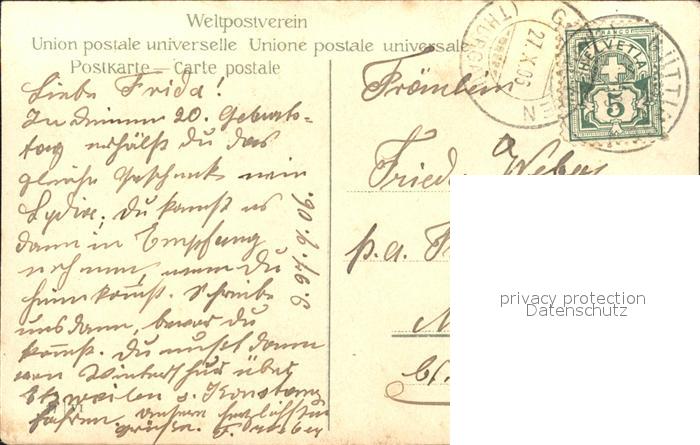 Weltpostverein
Union postale universelle Unione postale universale
Postkarte — Carte postale
Liebe Frida!
In deinem 20. Geburts-
tag erhälst du das
gleiche Geschenk wie
Lydia; du kannst es
dann in Empfang
nehmen, wenn du
heim kömst. Schreibe
uns dann, bevor du
kömst. Du mußt dann
von Winterthur über
Etzweilen u. Konstanz
fahren, unsere herzlichsten
grüße.
Fräulein
Frieda Weber
p.a.
HELVETIA
5
27.X.06
(THURG
privacy protection
Datenschutz